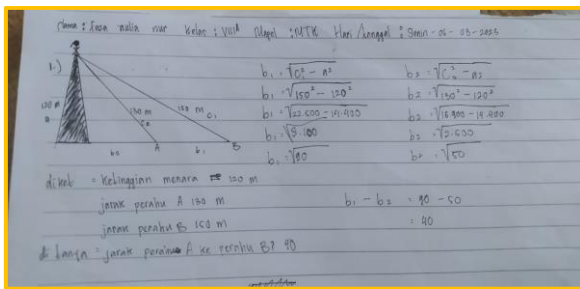 Nama : Insa aulia nur Kelas : VIII Mapel : MTK Hari/tanggal : Senin - 06 - 03 - 2023
1.)
120 m
a
130 m
C2
150 m C1
b2 A b1 B
b1 = √C1² - a²
b1 = √150² - 120²
b1 = √22.500 - 14.400
b1 = √8.100
b1 = √90
b2 = √C2² - a²
b2 = √130² - 120²
b2 = √16.900 - 14.400
b2 = √2.500
b2 = √50
diket = Ketinggian menara = 120 m
jarak perahu A 130 m
jarak perahu B 150 m
b1 - b2 = 90 - 50
= 40
di tanya = jarak perahu A ke perahu B? 40